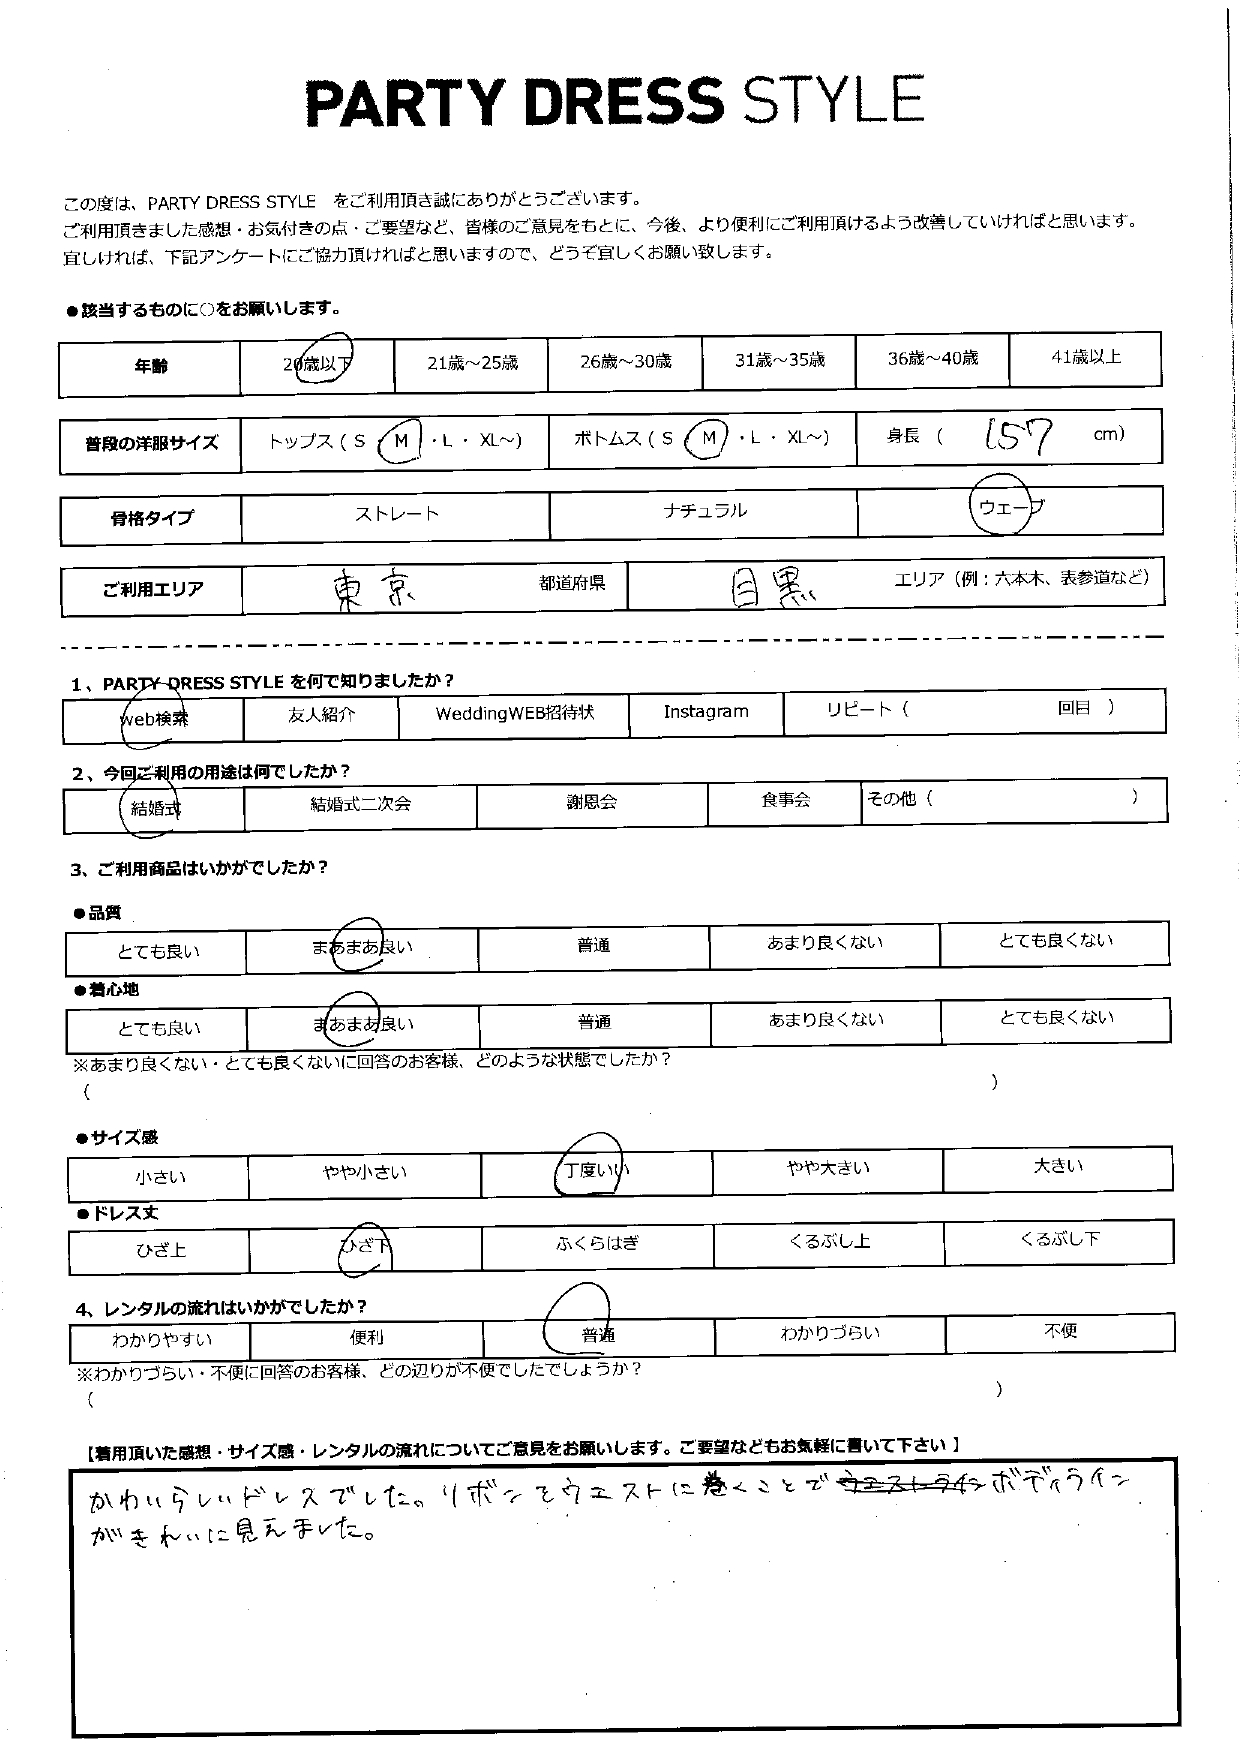 PARTY DRESS STYLE
この度は、PARTY DRESS STYLE をご利用頂き誠にありがとうございます。
ご利用頂きました感想・お気付きの点・ご要望など、皆様のご意見をもとに、今後、より便利にご利用頂けるよう改善していければと思います。
宜しければ、下記アンケートにご協力頂ければと思いますので、どうぞ宜しくお願い致します。
●該当するものに○をお願いします。
年齢 20歳以下 21歳～25歳 26歳～30歳 31歳～35歳 36歳～40歳 41歳以上
普段の洋服サイズ トップス（S ・M ・L ・ XL～） ボトムス（S ・M ・L ・ XL～） 身長（ 157 cm）
骨格タイプ ストレート ナチュラル ウェーブ
ご利用エリア 東京 都道府県 目黒 エリア（例：六本木、表参道など）
1、PARTY DRESS STYLE を何で知りましたか？
web検索 友人紹介 WeddingWEB招待状 Instagram リピート（ 回目 ）
2、今回ご利用の用途は何でしたか？
結婚式 結婚式二次会 謝恩会 食事会 その他（ ）
3、ご利用商品はいかがでしたか？
●品質
とても良い まあまあ良い 普通 あまり良くない とても良くない
●着心地
とても良い まあまあ良い 普通 あまり良くない とても良くない
※あまり良くない・とても良くないに回答のお客様、どのような状態でしたか？
（ ）
●サイズ感
小さい やや小さい 丁度いい やや大きい 大きい
●ドレス丈
ひざ上 ひざ下 ふくらはぎ くるぶし上 くるぶし下
4、レンタルの流れはいかがでしたか？
わかりやすい 便利 普通 わかりづらい 不便
※わかりづらい・不便に回答のお客様、どの辺りが不便でしたでしょうか？
（ ）
【着用頂いた感想・サイズ感・レンタルの流れについてご意見をお願いします。ご要望などもお気軽に書いて下さい 】
かわいらしいドレスでした。リボンをウエストに巻くことで ウエストライン ボディライン
がきれいに見えました。